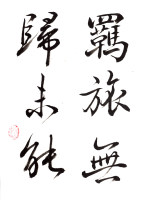 羈旅無
歸未能